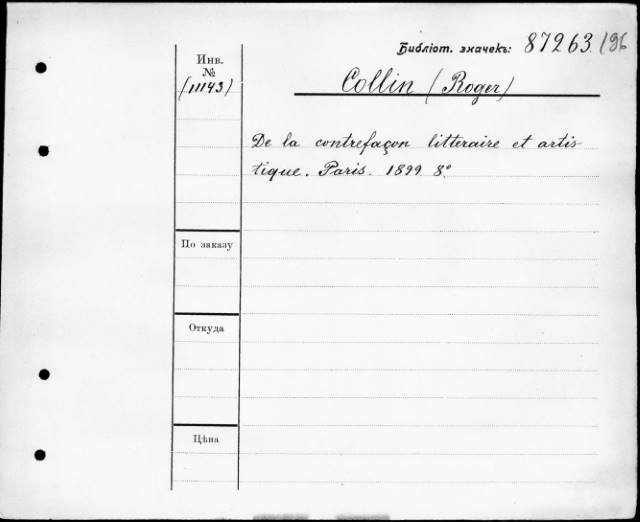 Библіот. значекъ: 87263/96
Инв.
№
(11143)
Collin (Roger)
De la contrefaçon litteraire et artis-
tique. Paris. 1899 8°
По заказу
Откуда
Цѣна